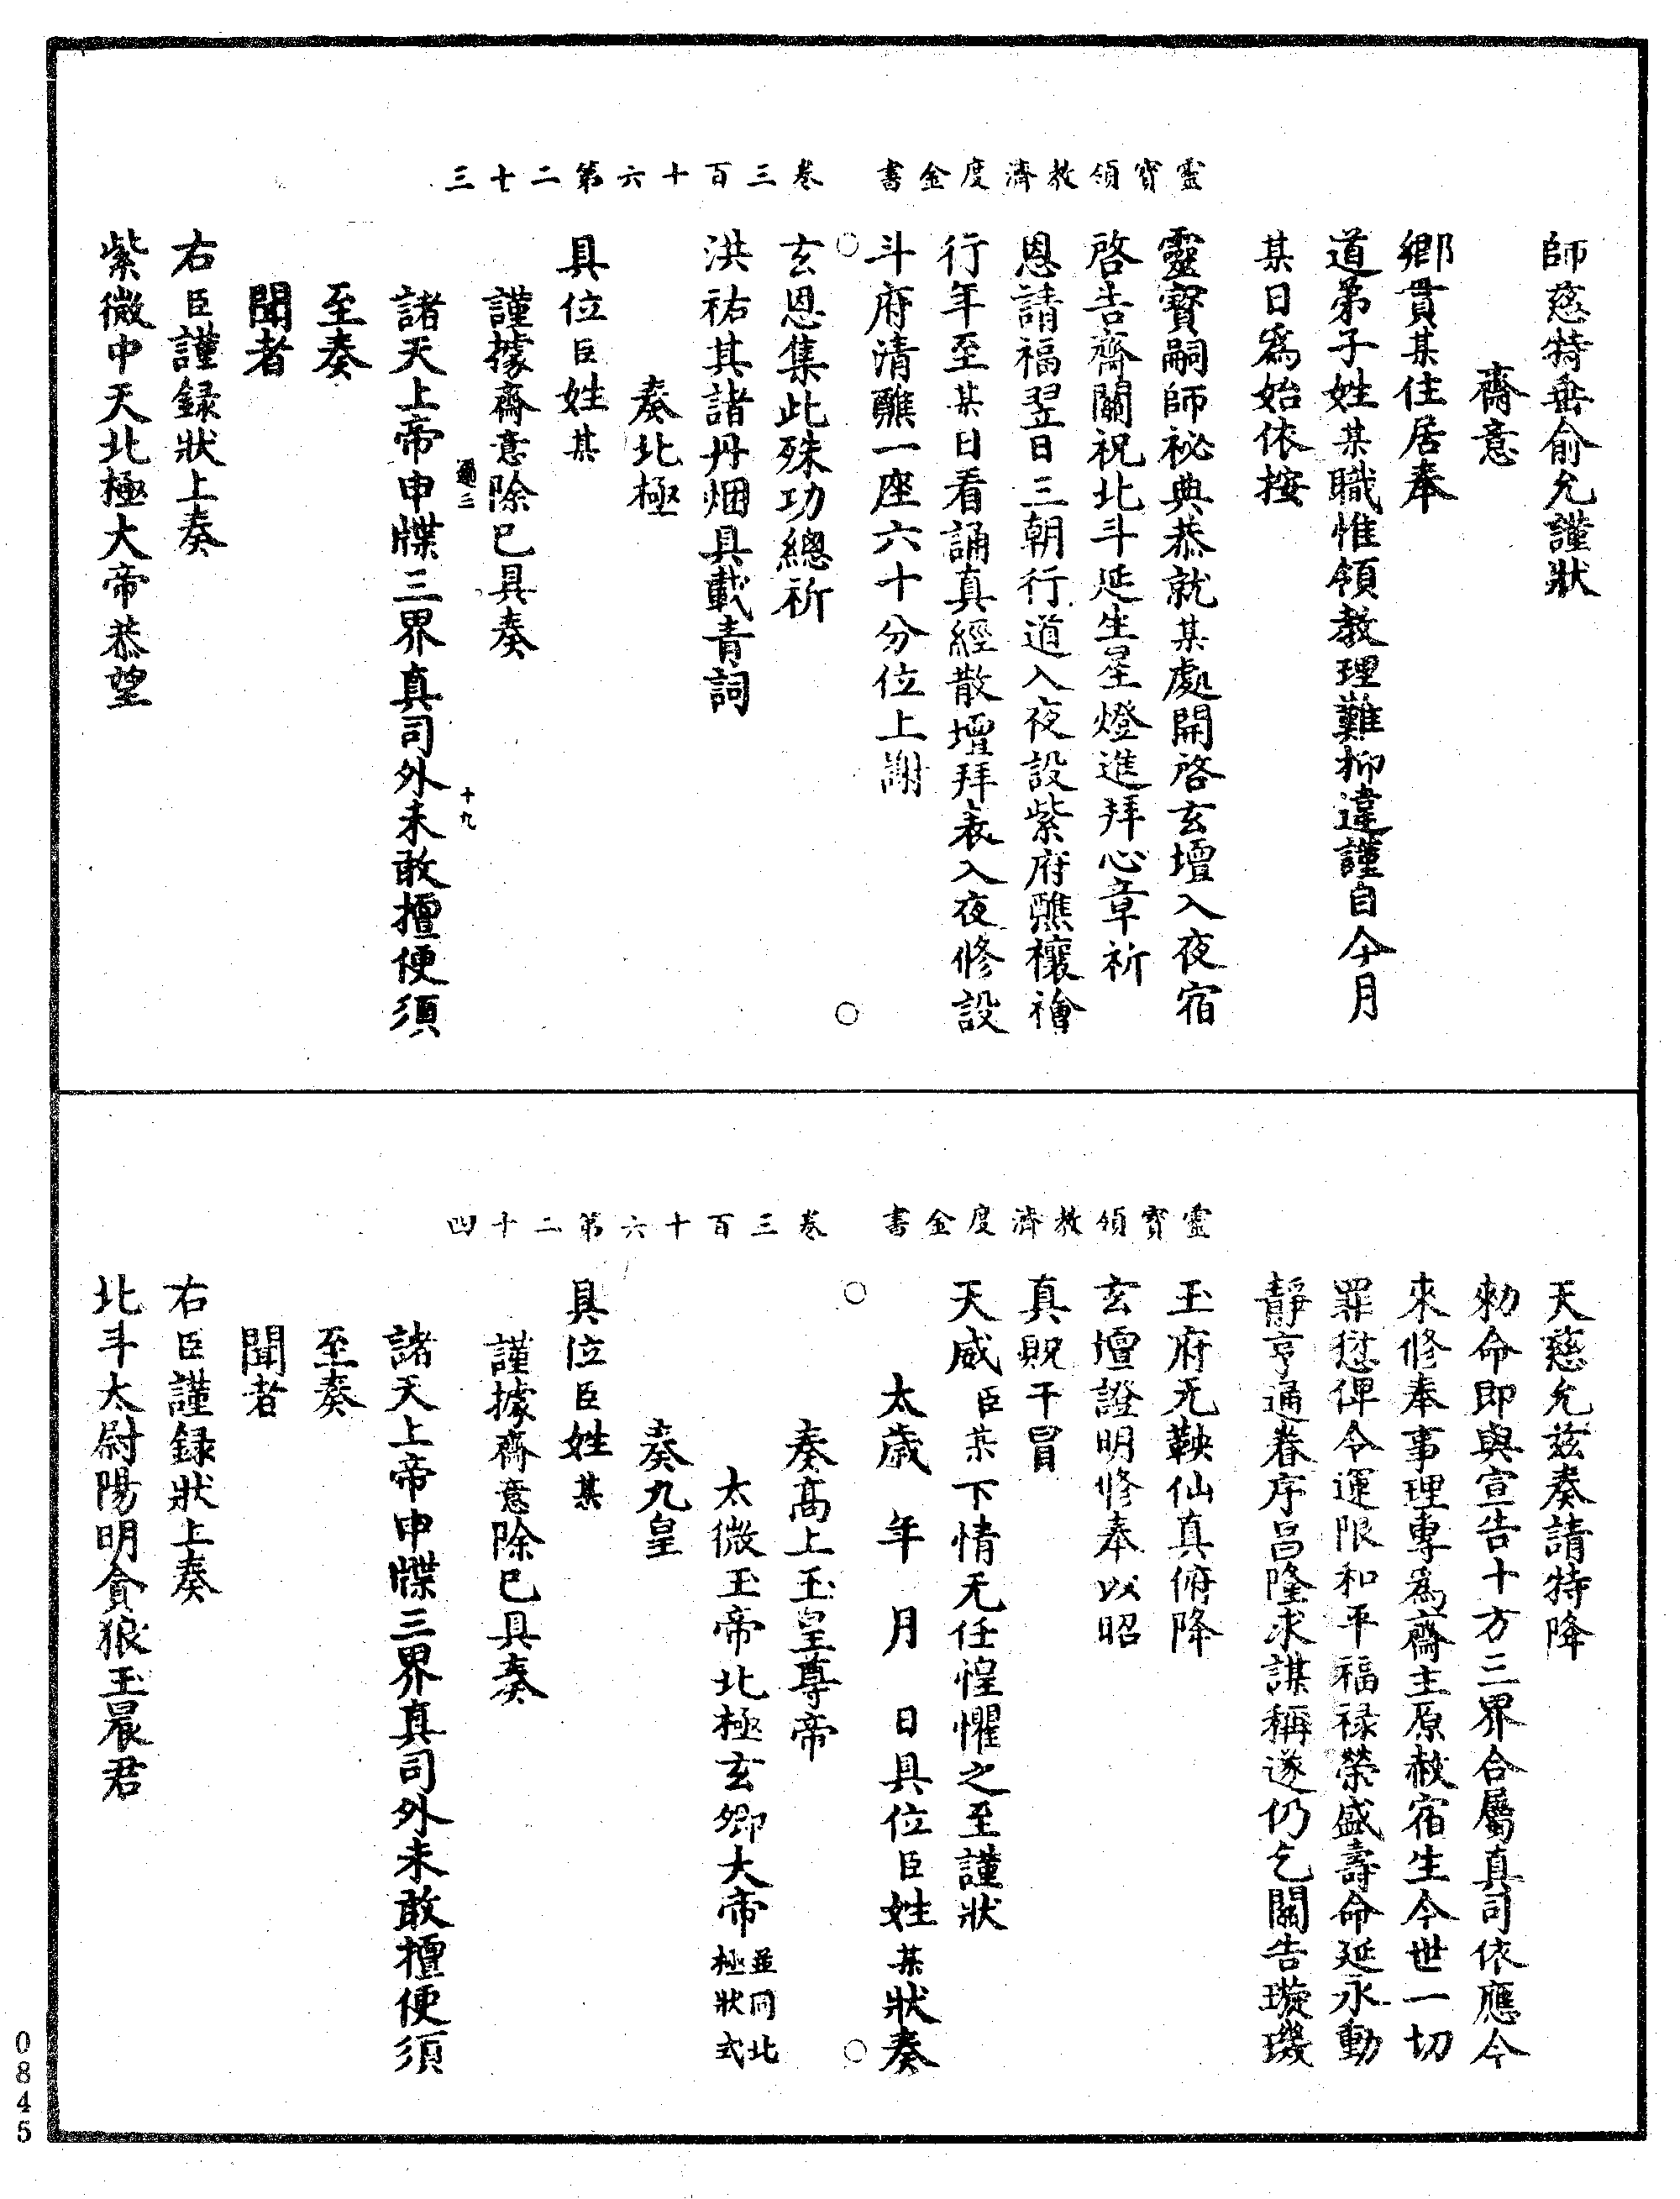 靈寶領教濟度金書　卷三百十六第二七三
師慈特垂俞允謹狀
齋意
鄉貫某住居奉
道弟子姓某職惟領教理難抑違謹自今月
某日爲始依按
靈寶嗣師祕典恭就某處開啓玄壇入夜宿
啓告齋關祝北斗延生星燈進拜心章祈
恩請福翌日三朝行道入夜設紫府醮禳禬
行年至某日看誦真經散壇拜表入夜修設
斗府清醮一座六十分位上謝
玄恩集此殊功總祈
洪祐其諸丹烟具載青詞
奏北極
具位臣姓某
謹據齋意除已具奏
通三　十九
諸天上帝申牒三界真司外未敢擅便須
至奏
聞者
右臣謹録狀上奏
紫微中天北極大帝恭望
靈寶領教濟度金書　卷三百十六第二十四
天慈允兹奏請特降
勑命即與宣告十方三界合屬真司依應今
來修奉事理專爲齋主原赦宿生今世一切
罪愆俾令運限和平福禄榮盛壽命延永動
靜亨通眷序昌隆求謀稱遂仍乞關告璇璣
玉府无鞅仙真俯降
玄壇證明修奉以昭
真貺干冒
天威臣某下情无任惶懼之至謹狀
太歲　年　月　日具位臣姓某狀奏
奏高上玉皇尊帝
太微玉帝北極玄卿大帝並同北極狀式
奏九皇
具位臣姓某
謹據齋意除已具奏
諸天上帝申牒三界真司外未敢擅便須
至奏
聞者
右臣謹録狀上奏
北斗太尉陽明貪狼玉晨君
0845